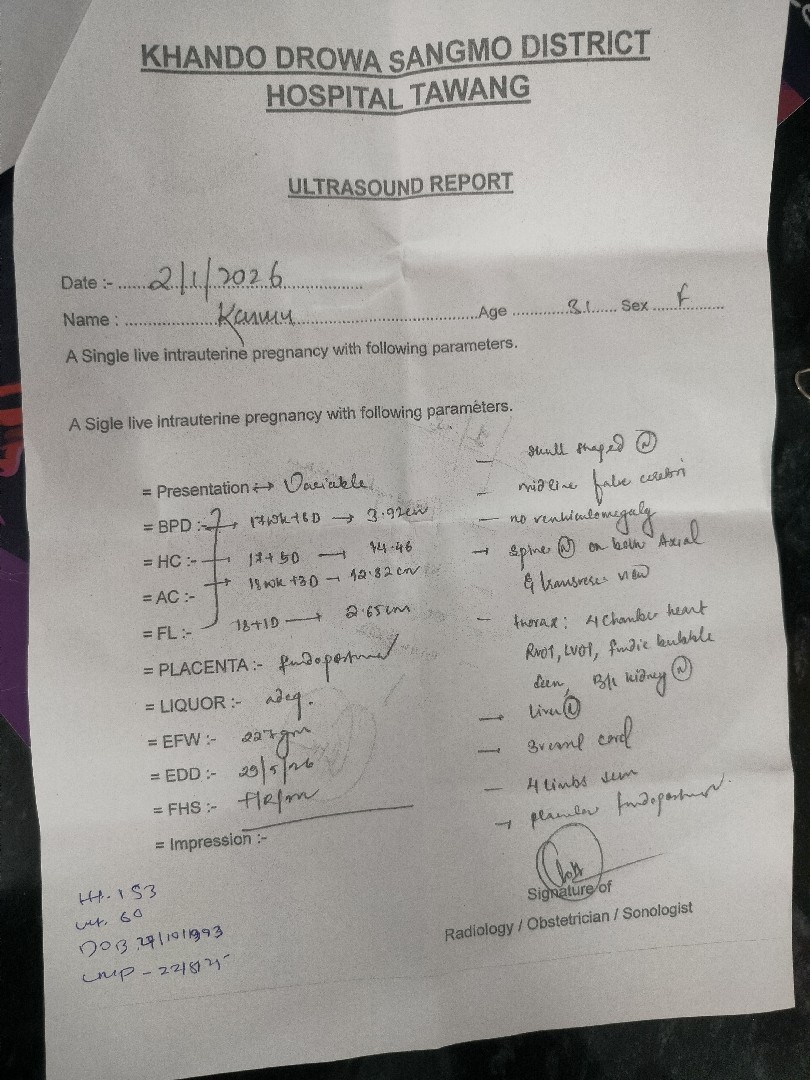 KHANDO DROWA SANGMO DISTRICT
HOSPITAL TAWANG
ULTRASOUND REPORT
Date :- 2/1/2026
Name : Age 31 Sex F
A Single live intrauterine pregnancy with following parameters.
A Sigle live intrauterine pregnancy with following parameters.
= Presentation Variable
= BPD :- 17wk+6D → 3.92cm
= HC :- 17+5D 14.46
= AC :- 18wk+3D 12.82cm
= FL :- 18+1D → 2.65cm
= PLACENTA :- fundoposterior
= LIQUOR :- adeq.
= EFW :- 227gm
= EDD :- 29/5/26
= FHS :-
= Impression :-
– skull shaped (N)
– midline falx cerebri
– no ventriculomegaly
→ spine (N) on both Axial
& transverse view
– thorax : 4 chamber heart
RVOT, LVOT, fundic bubble
seen, B/L kidney (N)
→ liver (N)
– 3 vessel cord
– 4 limbs seen
→ placenta fundoposterior.
Signature of
Radiology / Obstetrician / Sonologist
Ht. 153
wt. 60
DOB 29/10/1993
LMP - 22/8/25